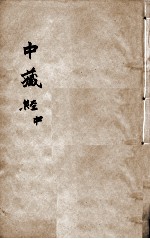 中藏經中